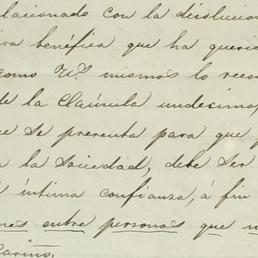 lacionado con la disolucion
ra benéfica que ha querid
como Us mismos lo reco
de la Claúsula undesima,
ue se presenta para que
a la Sociedad, debe ser
intima confianza, á fin
nes entre personas que
Carino.